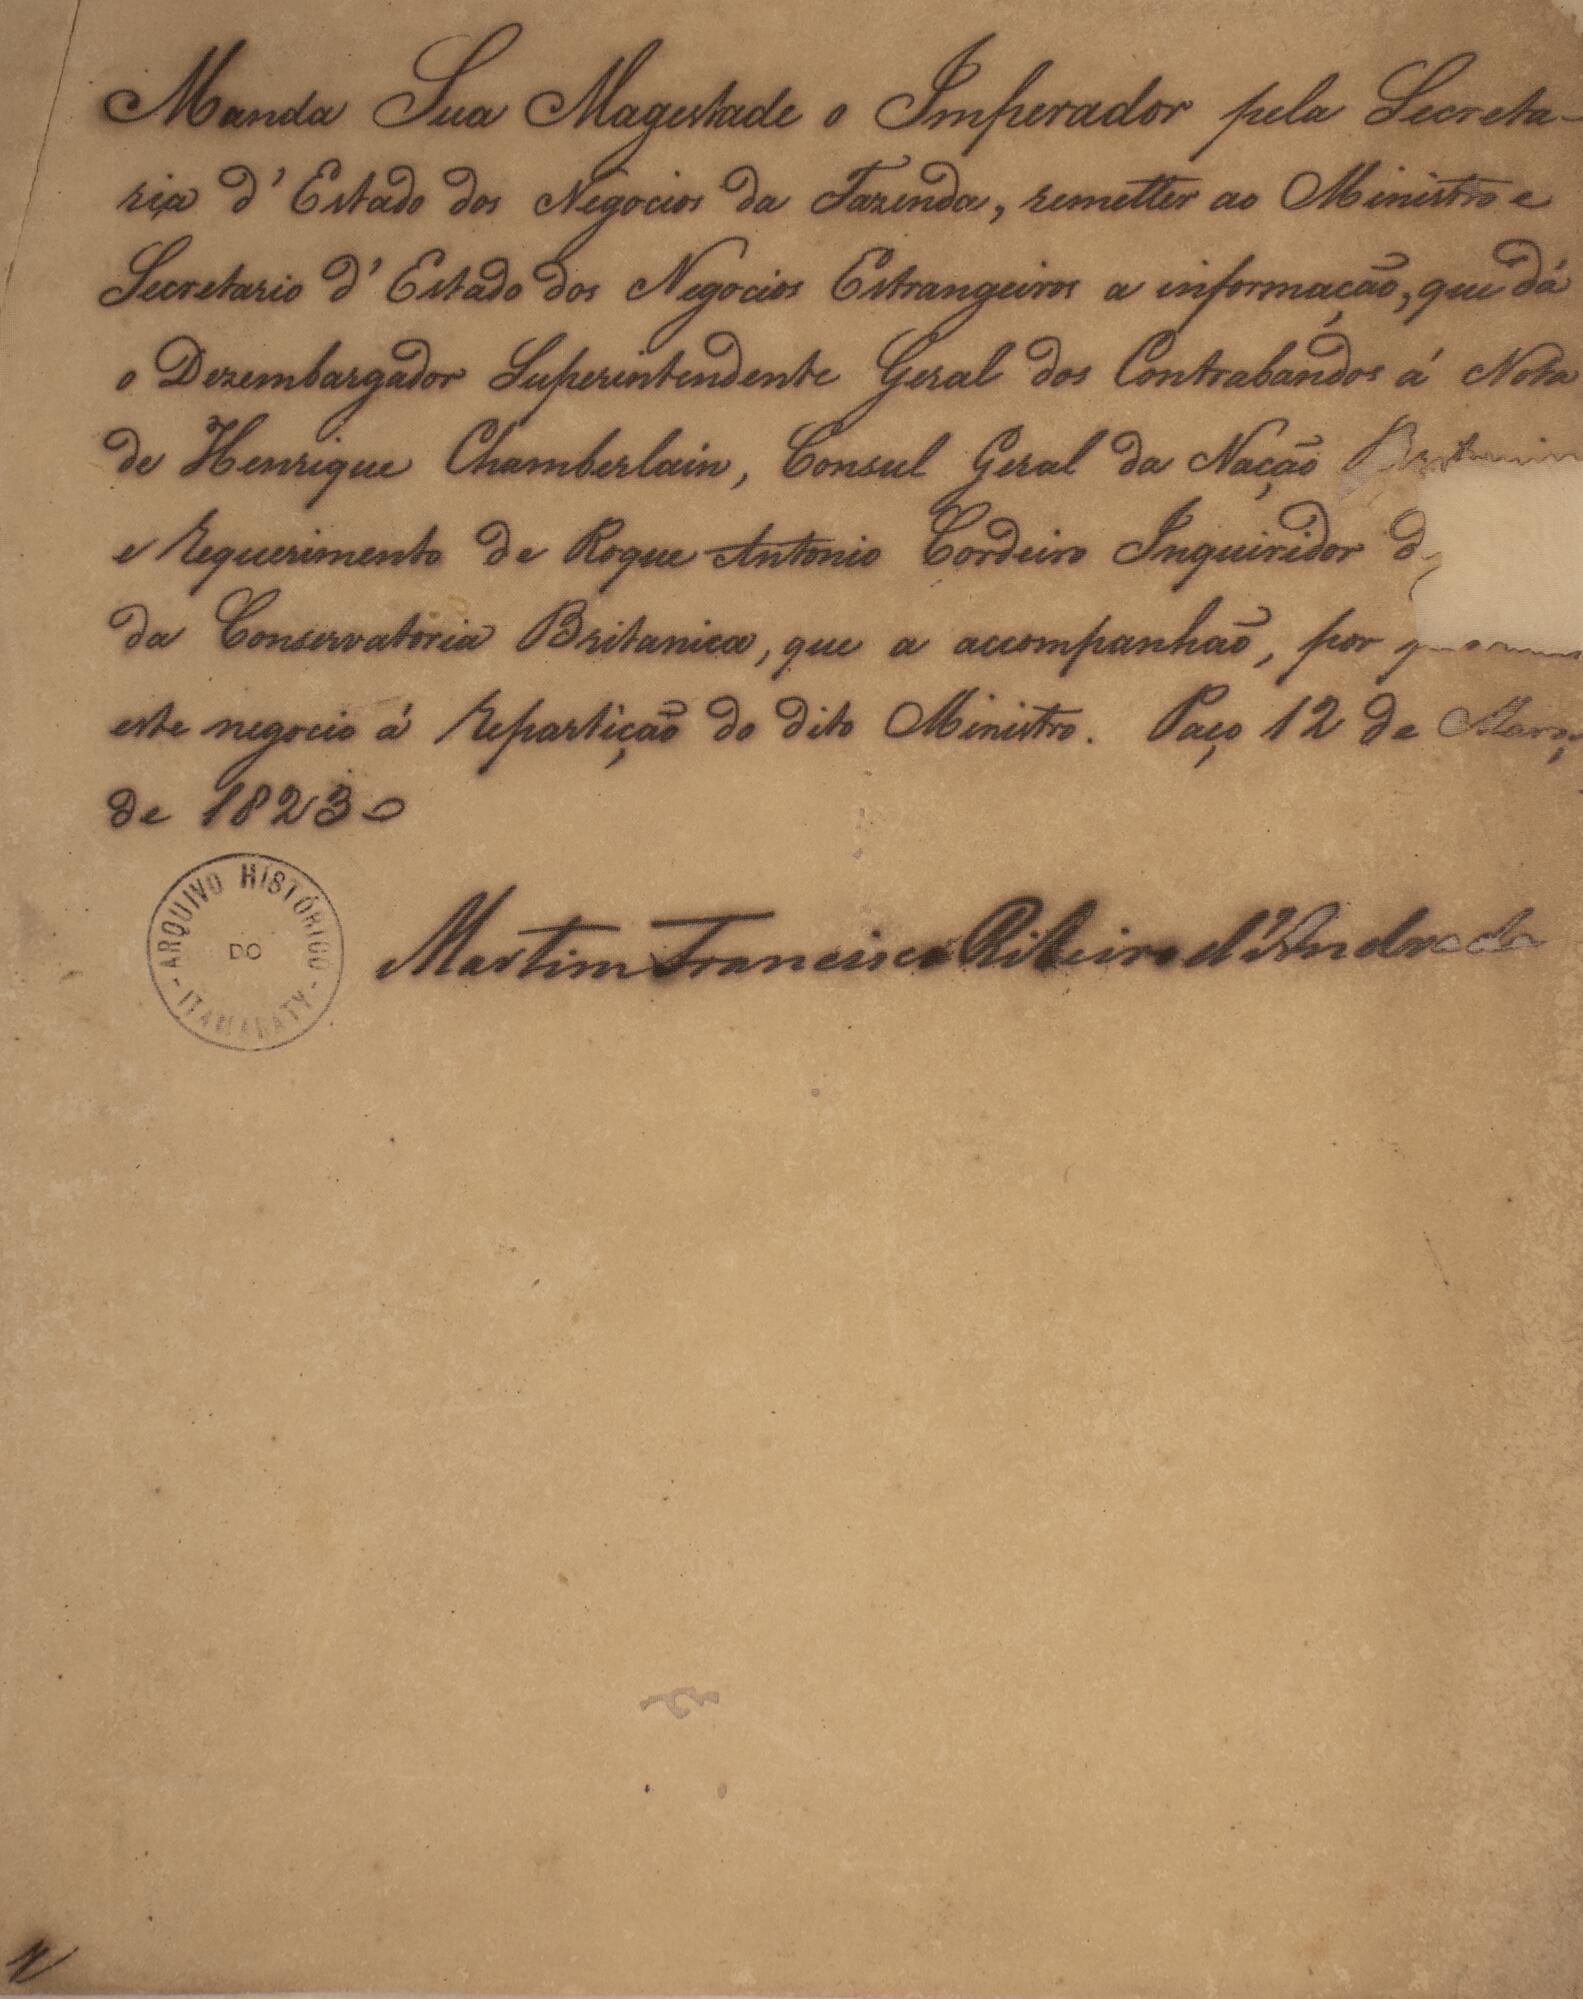 Manda Sua Magestade o Imperador pela Secreta-
ria d'Estado dos Negocios da Fazenda, remetter ao Ministro e
Secretario d'Estado dos Negocios Estrangeiros a informação, que dá
o Dezembargador Superintendente Geral dos Contrabandos á Nota
de Henrique Chamberlain, Consul Geral da Nação
e Requerimento de Roque Antonio Cordeiro Inquiridor
da Conservatoria Britanica, que a accompanhão, por
este negocio á Repartição do dito Ministro. Paço 12 de Março
de 1823
ARQUIVO HISTÓRICO
DO
ITAMARATY
Martim Francisco Ribeiro d'Andrada